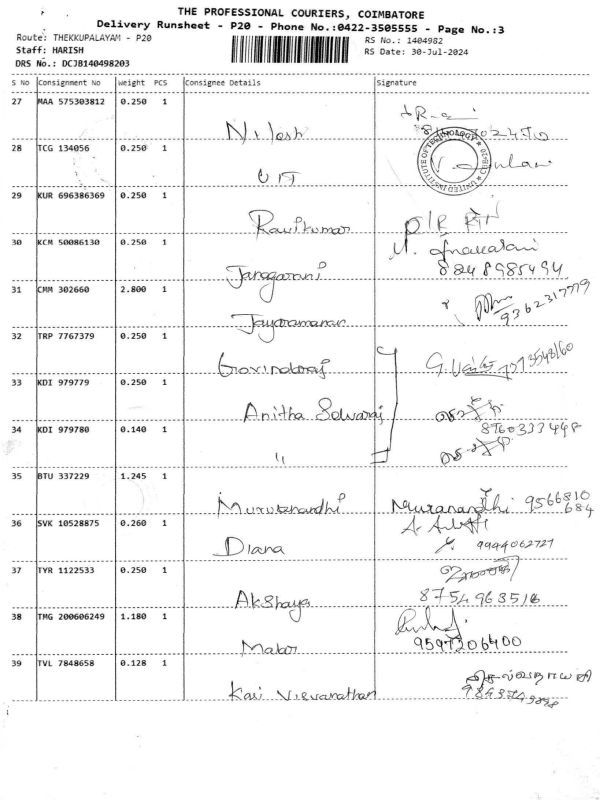 THE PROFESSIONAL COURIERS, COIMBATORE
Delivery Runsheet - P20 - Phone No.:0422-3505555 - Page No.:3
Route: THEKKUPALAYAM - P20 RS No.: 1404982
Staff: HARISH RS Date: 30-Jul-2024
DRS No.: DCJB140498203
S No Consignment No Weight PCS Consignee Details Signature
27 MAA 575303812 0.250 1
Nilesh
28 TCG 134056 0.250 1
UIT
UNITED INSTITUTE OF TECHNOLOGY
29 KUR 696386369 0.250 1
Ravikumar
30 KCM 50086130 0.250 1
Janagarani 8248985494
31 CMM 302660 2.800 1
Jayaramanan 9362317779
32 TRP 7767379 0.250 1
Govindaraj 7373548160
33 KDI 979779 0.250 1
Anitha Selvaraj
8760333448
34 KDI 979780 0.140 1
"
35 BTU 337229 1.245 1
Murutanandhi 9566810
684
36 SVK 10528875 0.260 1
Diana 9994062727
37 TYR 1122533 0.250 1
Akshaya 8754963516
38 TMG 200606249 1.180 1
9597306400
39 TVL 7848658 0.128 1
Kasi Visvanathan